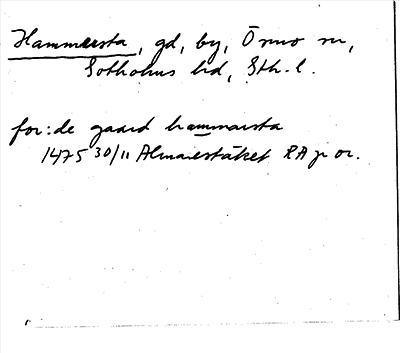 Hammersta, gd, by, Ösmo sn,
Sotholms hd, Sth. l.
for: de gaard hammarsta
1475 30/11 Almarestäket RA p or.